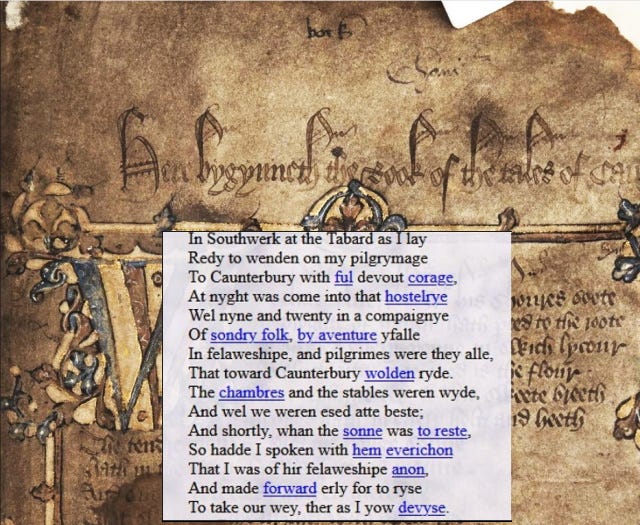 Here bygynneth the Book of the tales of Can
In Southwerk at the Tabard as I lay
Redy to wenden on my pilgrymage
To Caunterbury with ful devout corage,
At nyght was come into that hostelrye
Wel nyne and twenty in a compaignye
Of sondry folk, by aventure yfalle
In felaweshipe, and pilgrimes were they alle,
That toward Caunterbury wolden ryde.
The chambres and the stables weren wyde,
And wel we weren esed atte beste;
And shortly, whan the sonne was to reste,
So hadde I spoken with hem everichon
That I was of hir felaweshipe anon,
And made forward erly for to ryse
To take our wey, ther as I yow devyse.
his shoures soote
to the roote
swich lycour
is the flour
breeth
heeth